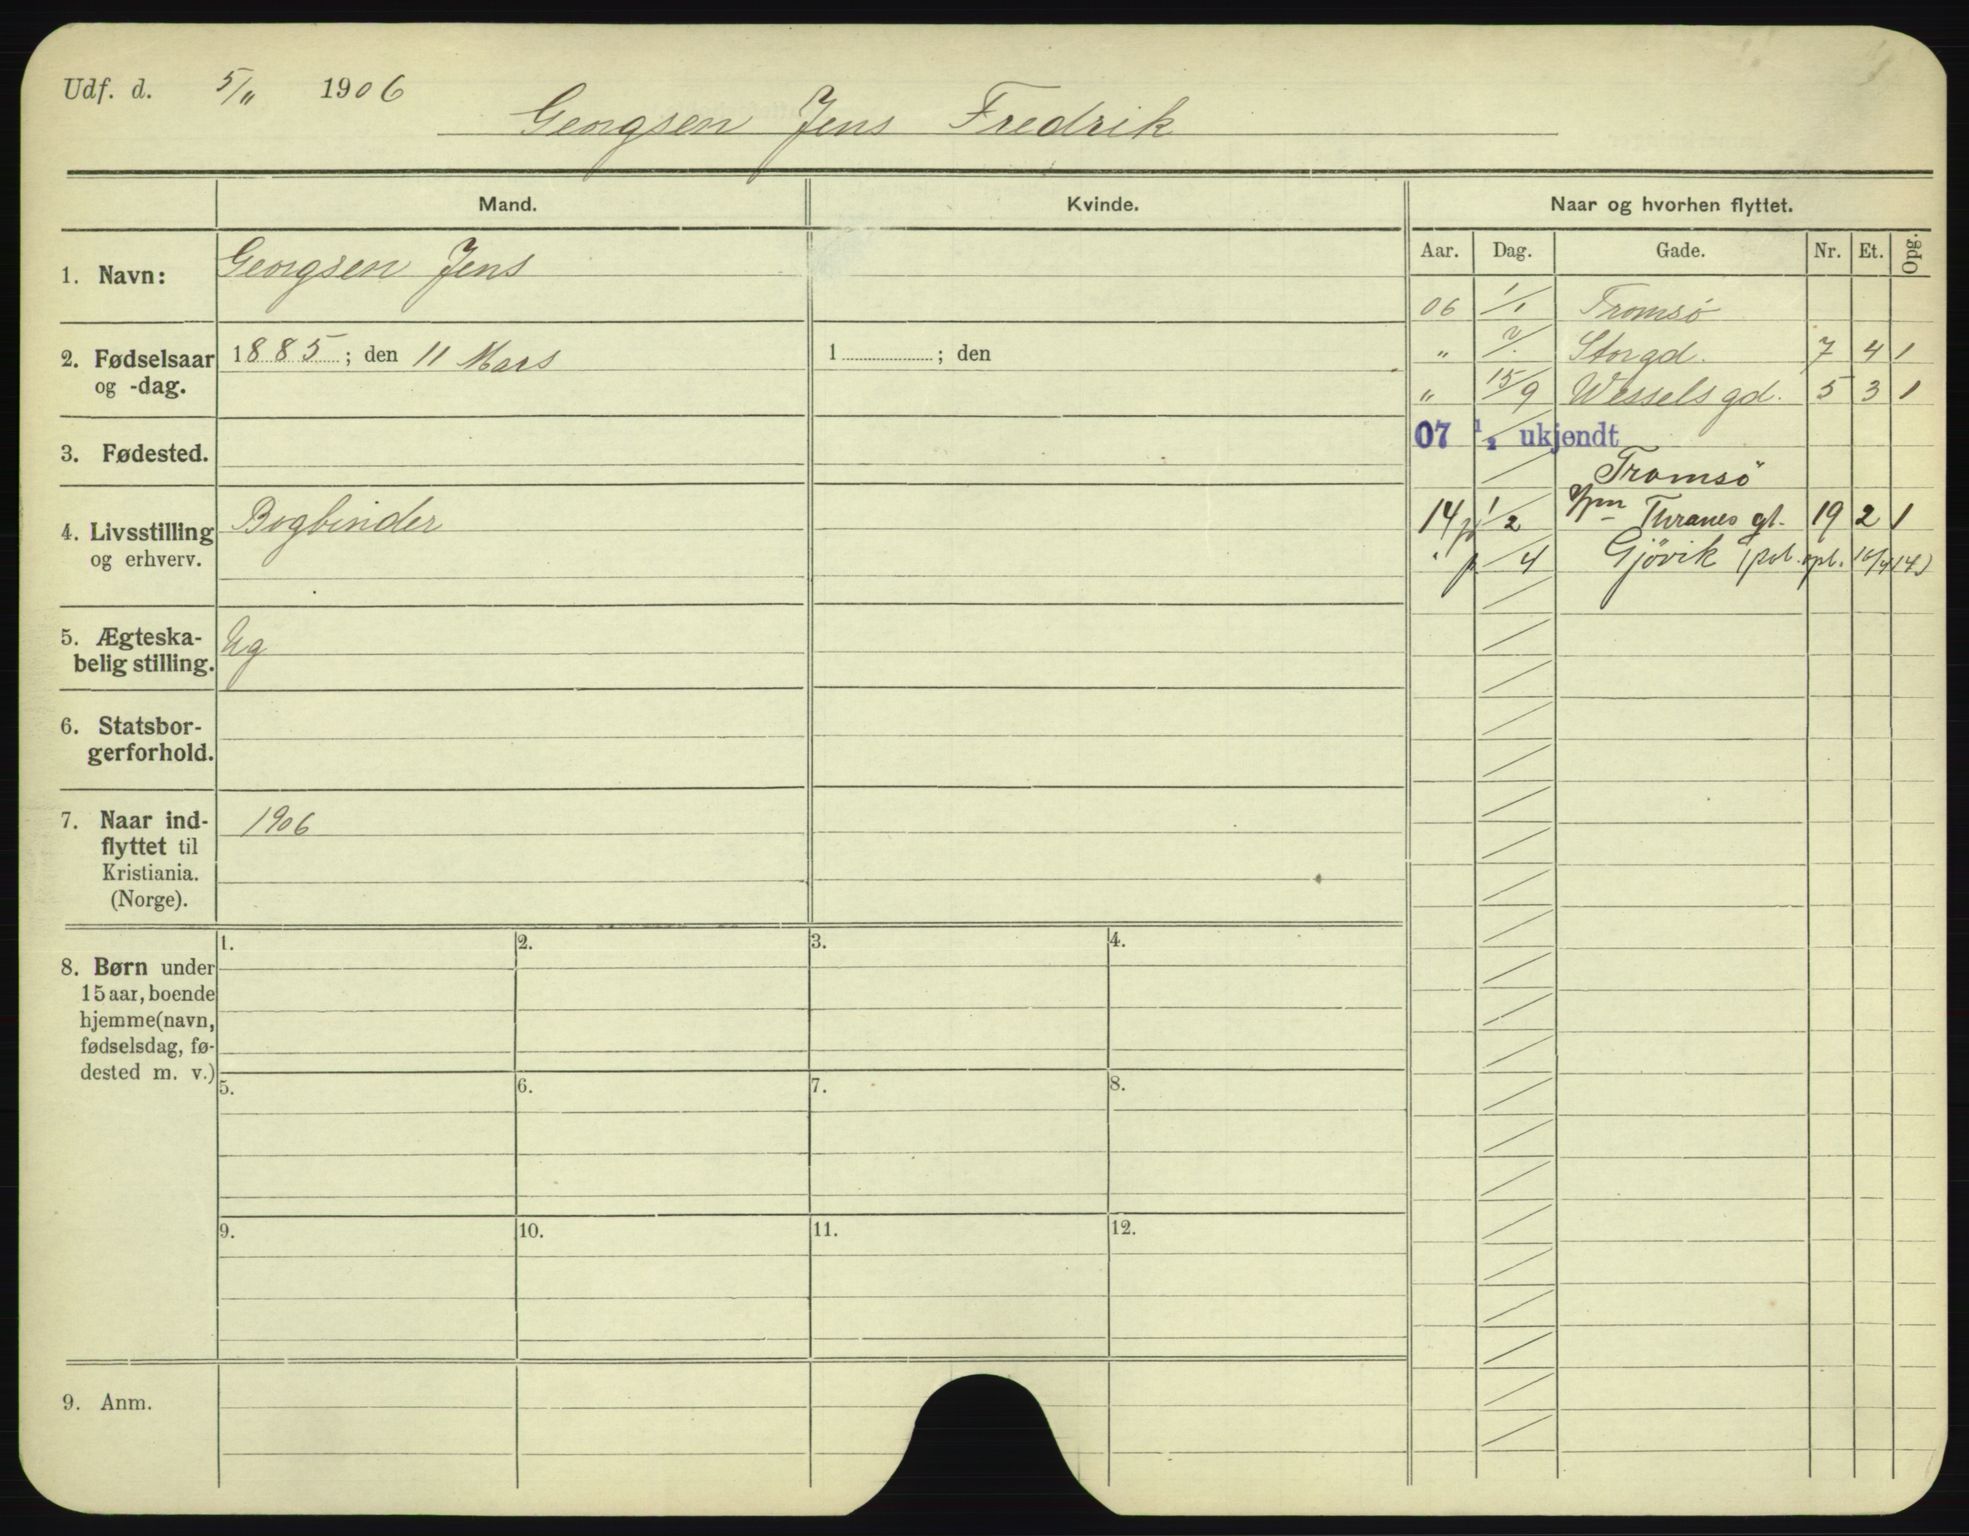 Udf. d. 5/11 1906
Georgsen Jens Fredrik
Mand. Kvinde. Naar og hvorhen flyttet.
Aar. Dag. Gade. Nr. Et. Opg.
1. Navn: Georgsen Jens
2. Fødselsaar og -dag.
1885; den 11 Mars
1 ; den
3. Fødested.
4. Livsstilling og erhverv.
Bogbinder
5. Ægteska-
belig stilling.
Ug
6. Statsbor-
gerforhold.
7. Naar ind-
flyttet til
Kristiania.
(Norge).
1906
8. Børn under
15 aar, boende
hjemme (navn,
fødselsdag, fø-
dested m. v.)
1. 2. 3. 4.
5. 6. 7. 8.
9. 10. 11. 12.
9. Anm.
06 1/1 Tromsø
" Storgd. 7 4 1
" 15/9 Wessels gd. 5 3 1
07 1/2 ukjendt
Tromsö
14 1/2 Thranes gt. 19 2 1
" 4 Gjövik (pol. opl. 16/4 14)